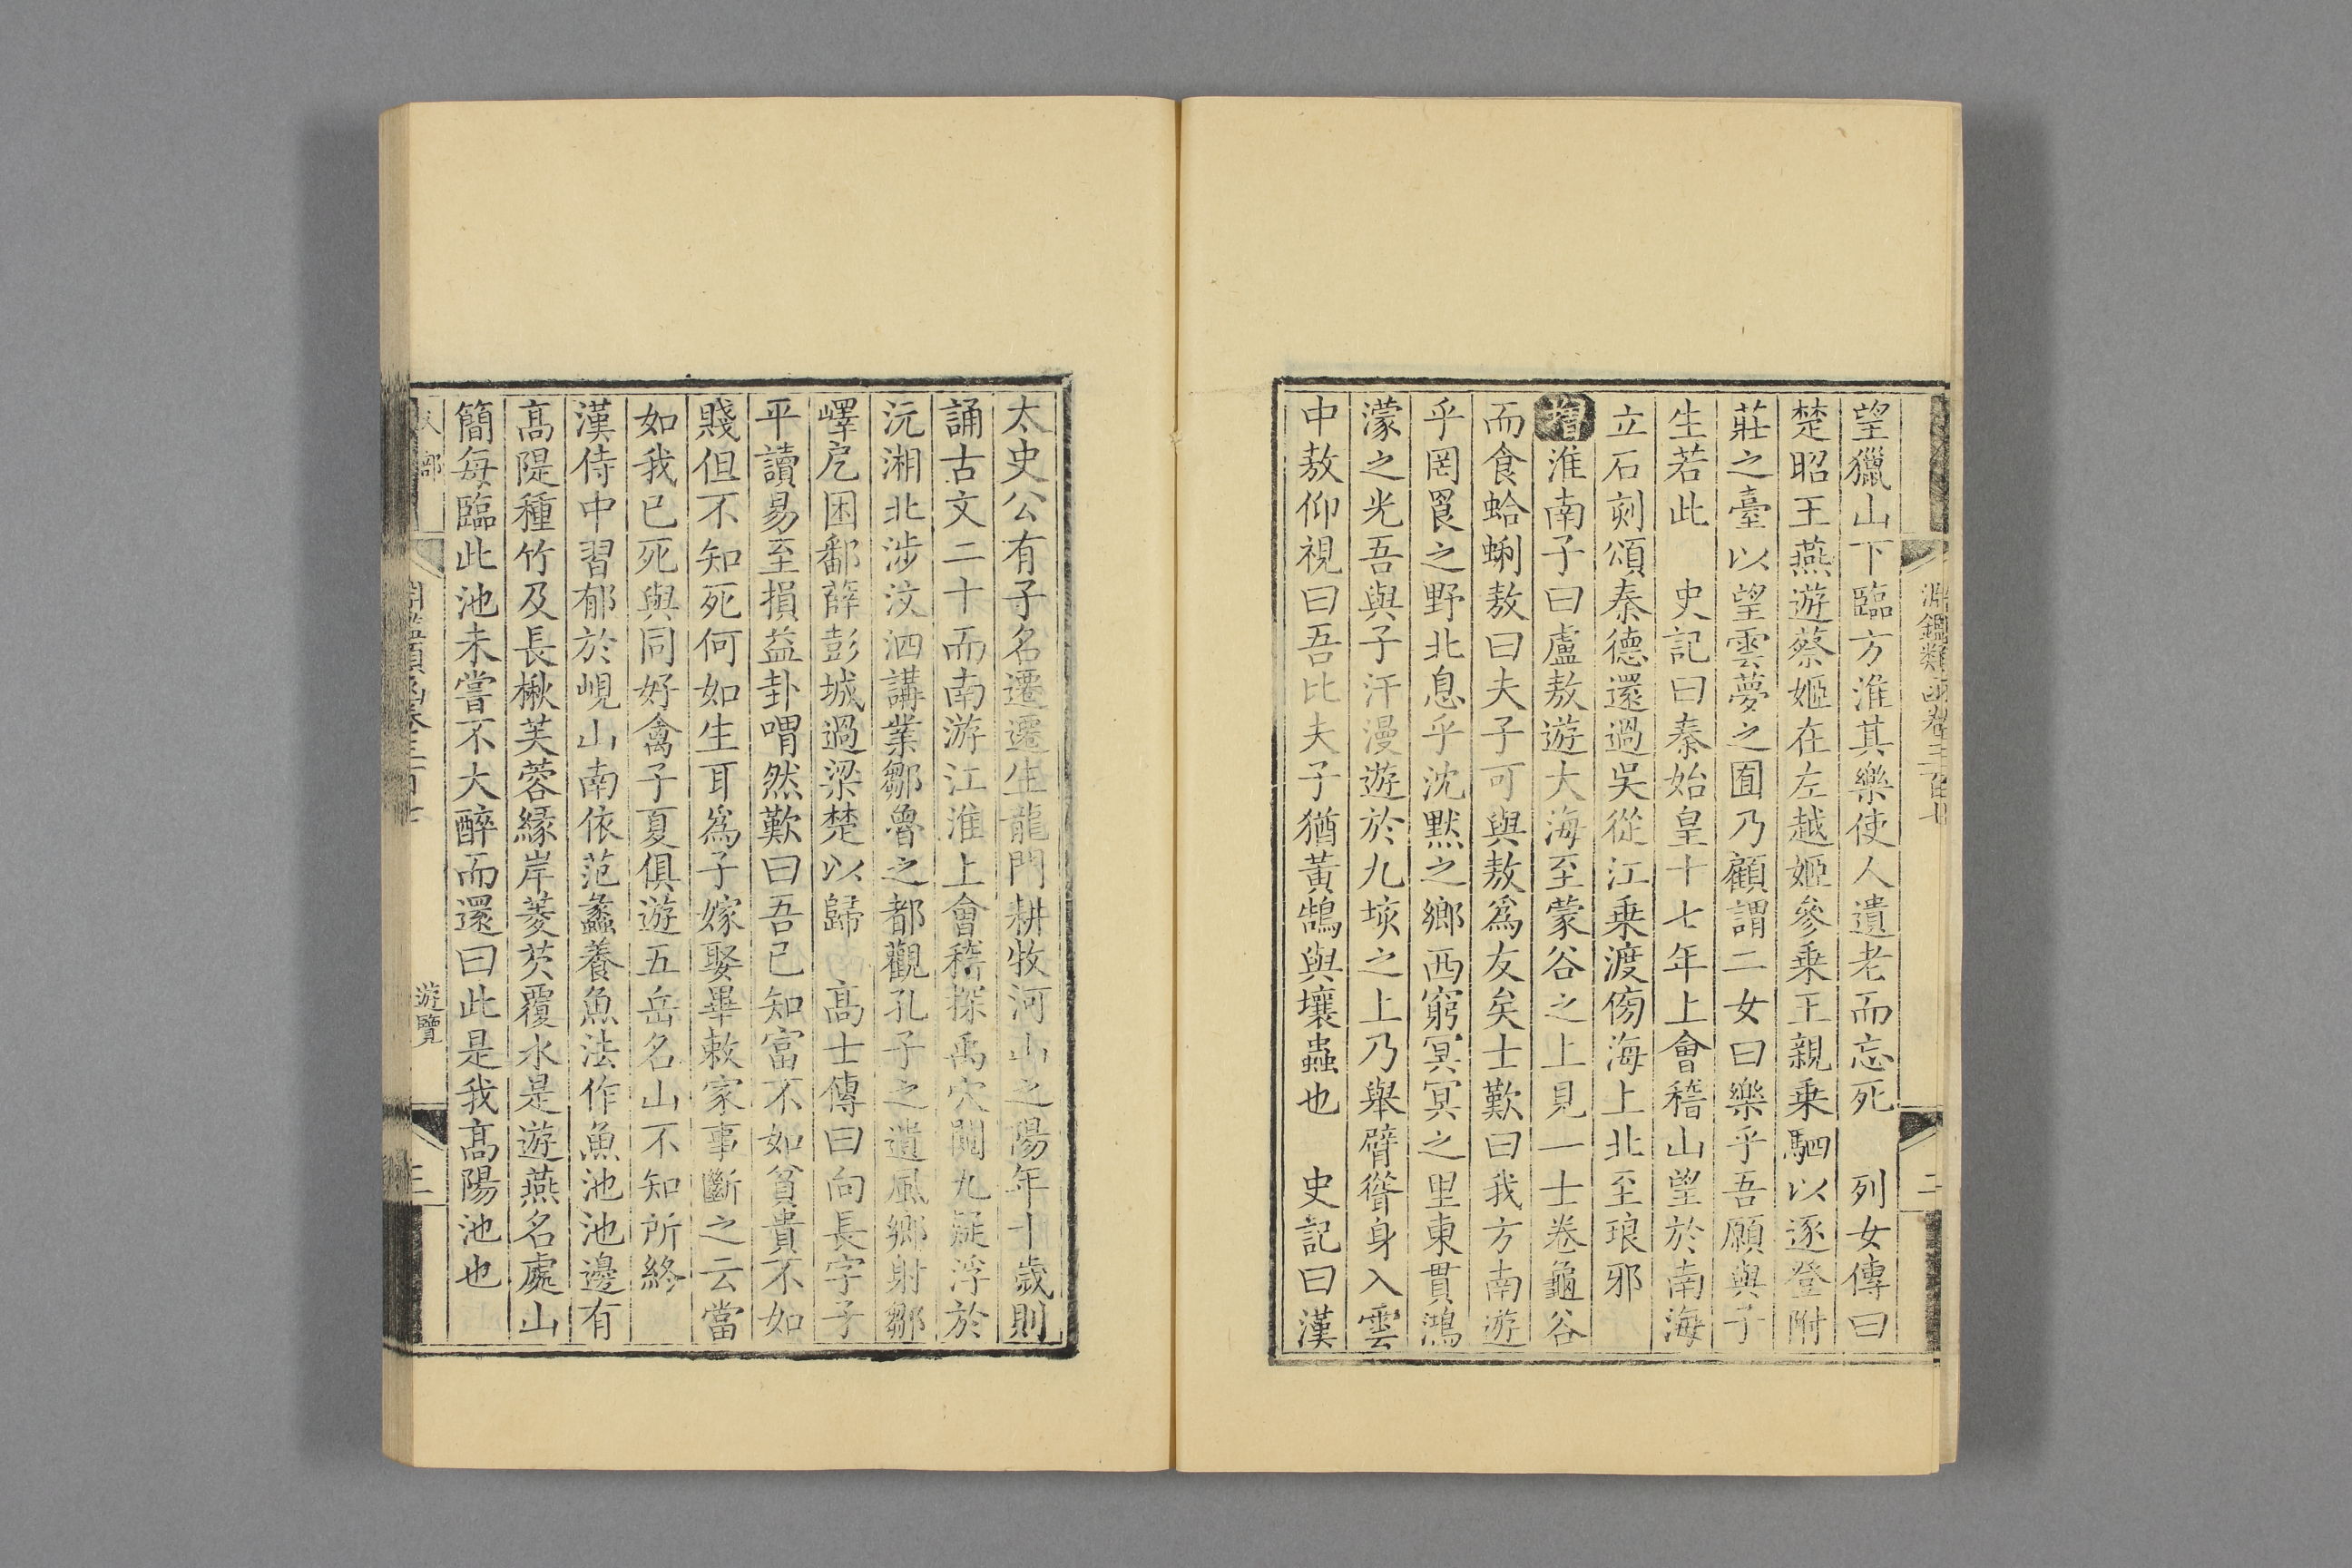 淵鑑類函卷三百七
二
望獵山下臨方淮其樂使人遺老而忘死　列女傳曰
楚昭王燕遊蔡姬在左越姬參乗王親乗駟以逐登附
莊之臺以望雲夢之囿乃顧謂二女曰樂乎吾願與子
生若此　史記曰秦始皇十七年上會稽山望於南海
立石刻頌秦德還過吳從江乗渡傍海上北至琅邪
增淮南子曰盧敖遊大海至蒙谷之上見一士卷龜谷
而食蛤蜊敖曰夫子可與敖爲友矣士歎曰我方南遊
乎罔𦊰之野北息乎沈默之鄉西窮冥冥之里東貫鴻
濛之光吾與子汗漫遊於九垓之上乃舉臂聳身入雲
中敖仰視曰吾比夫子猶黃鵠與壤蟲也　史記曰漢
太史公有子名遷遷生龍門耕牧河山之陽年十歲則
誦古文二十而南游江淮上會稽探禹穴闚九疑浮於
沅湘北涉汶泗講業鄒魯之都觀孔子之遺風鄉射鄒
嶧戹困鄱薛彭城過梁楚以歸　高士傳曰向長字子
平讀易至損益卦喟然歎曰吾已知富不如貧貴不如
賤但不知死何如生耳爲子嫁娶畢敕家事斷之云當
如我已死與同好禽子夏俱遊五岳名山不知所終
漢侍中習郁於峴山南依范蠡養魚法作魚池池邊有
高隄種竹及長楸芙蓉緣岸菱芡覆水是遊燕名處山
簡每臨此池未嘗不大醉而還曰此是我高陽池也
部
遊覽
三